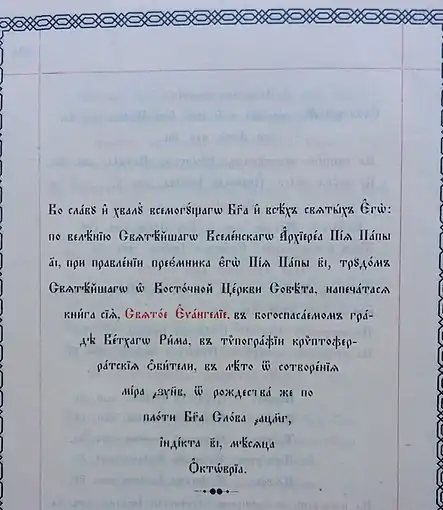 Во сла́вꙋ и҆ хвалꙋ̀ всемогꙋ́щагѡ Бг҃а и҆ всѣ́хъ свѧты́хъ Є҆гѡ̀:
по велѣ́нїю Свѧтѣ́йшагѡ Вселе́нскагѡ А҆рхїере́а Пі́а Па́пы
а҃і, при правле́нїи прее́мника є҆гѡ̀ Пі́а Па́пы в҃і, трꙋдо́мъ
Свѧтѣ́йшагѡ ѡ҆ Восто́чной Це́ркви Совѣ́та, напеча́тасѧ
кни́га сїѧ̀, Свѧто́е Є҆ѵа́нгелїе, въ богоспаса́емомъ гра́-
дѣ Ве́тхагѡ Ри́ма, въ тѷпогра́фїи крѷптофер-
ра́тскїѧ ѻ҆би́тели, въ лѣ́то ѿ сотворе́нїѧ
мі́ра ҂зꙋн҃в, ѿ рождества́ же по
пло́ти Бг҃а Сло́ва ҂ацм҃г,
і҆нді́кта в҃і, мѣ́сѧца
Ѻ҆ктѡ́врїа.